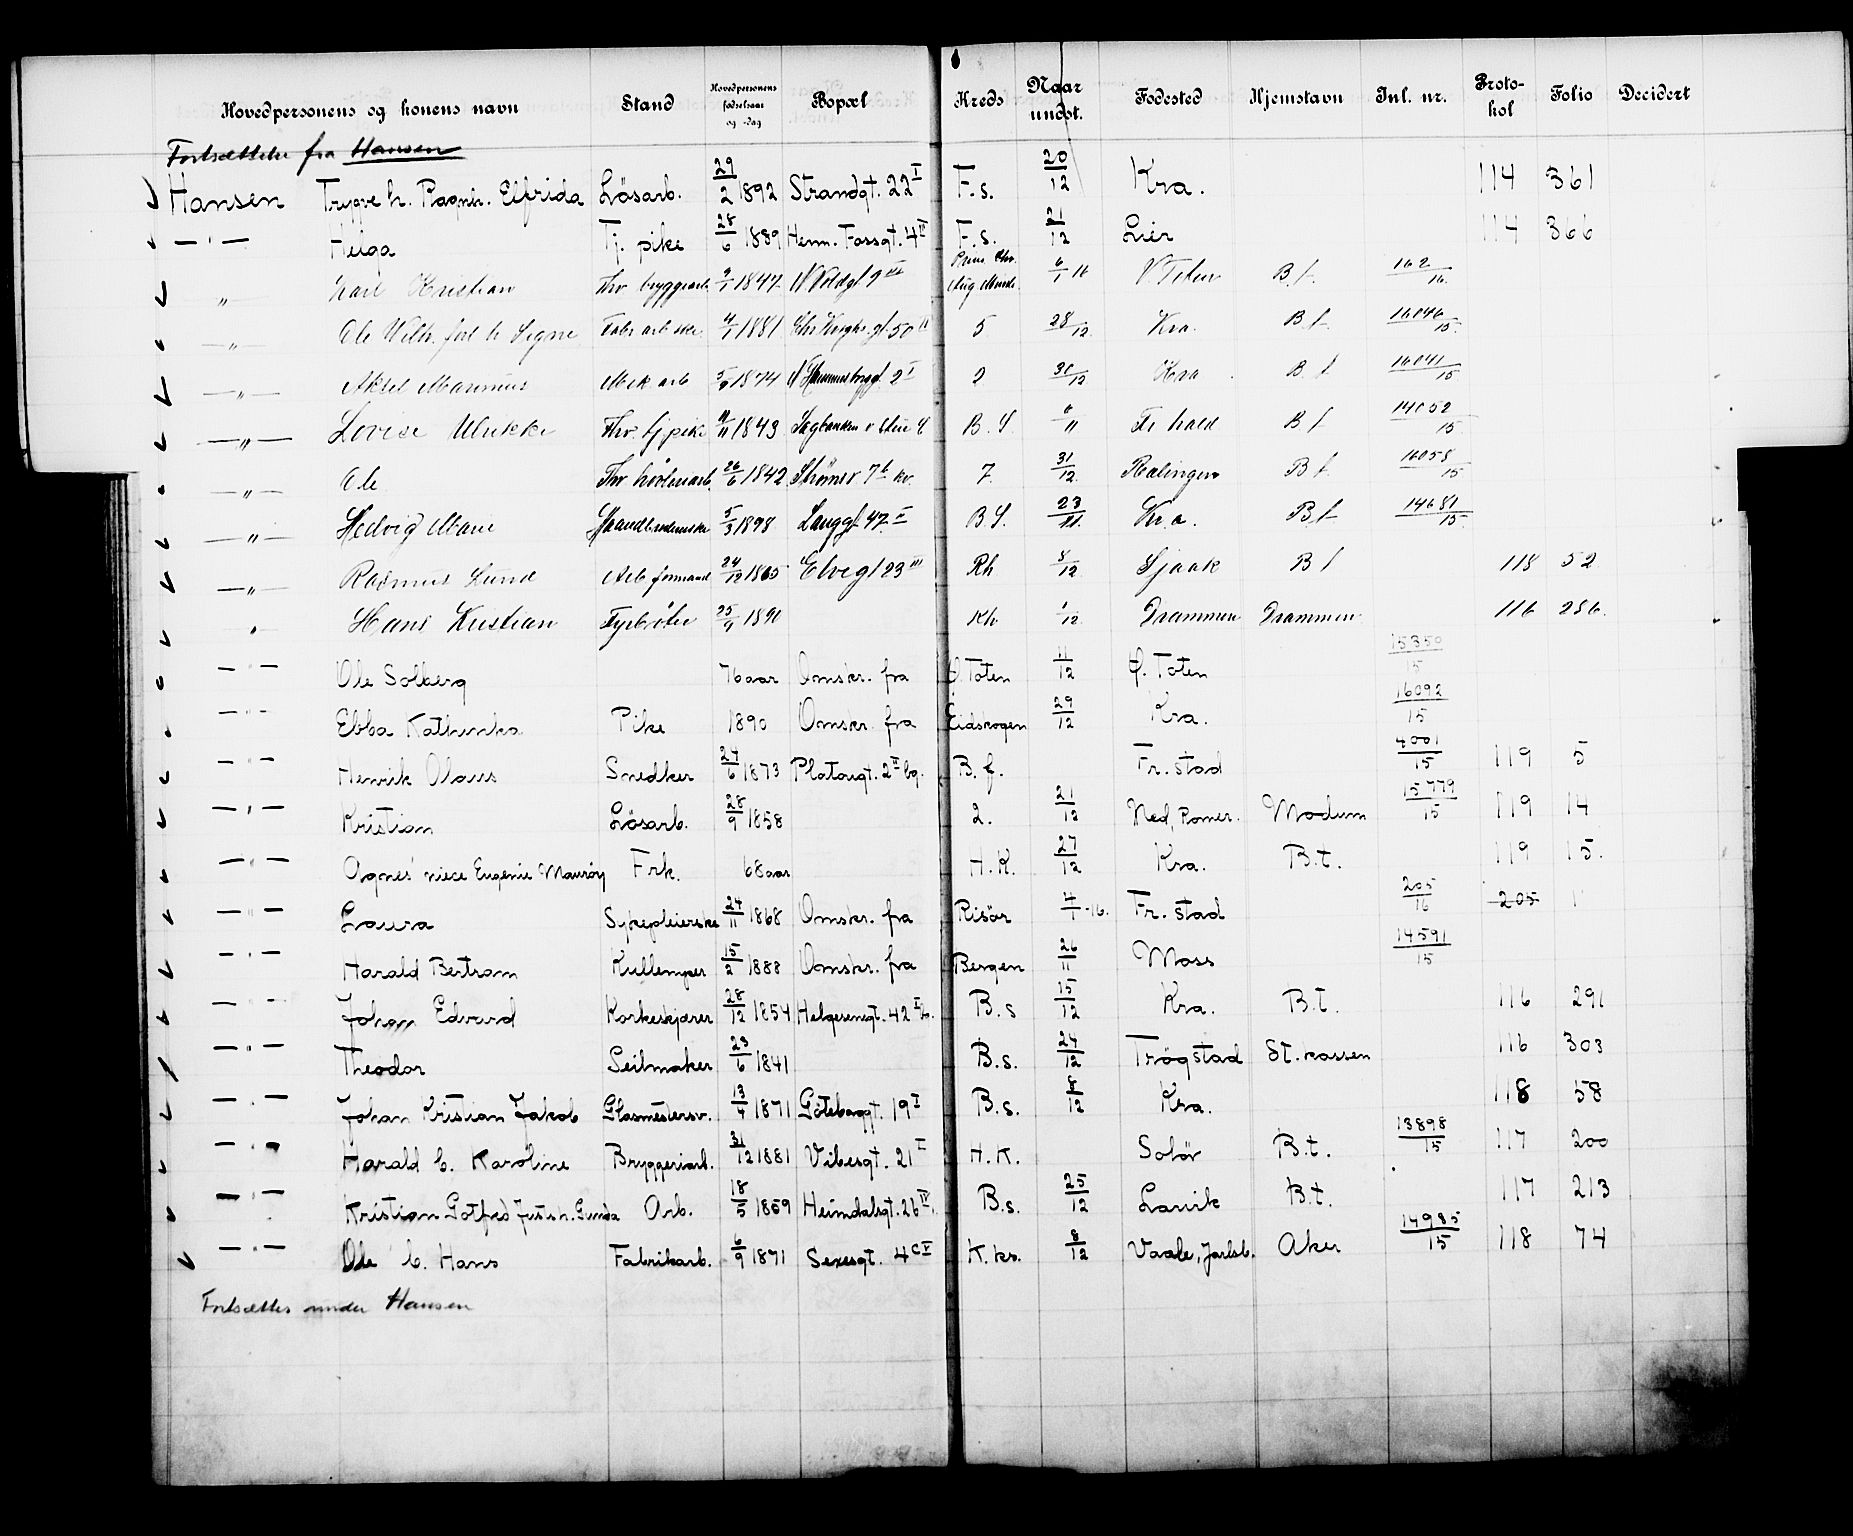 Hovedpersonens og konens navn Stand Hovedpersonens fødselsaar og -dag Bopæl Kreds Naar undst. Fødested Hjemstavn Inl. nr. Proto-kol Folio Decidert
Fortsættelse fra Hansen
Hansen Trygve h. Ragnh. Elfrida Løsarb. 29/2 1892 Strandgt. 22 I F.s. 20/12 Kra. 114 361
— " — Helga Tj. pike 28/6 1889 Herm. Fossgt. 4 II F.s. 21/12 Lier 114 366
" Karl Kristian Fhv. bryggearb. 1847 Prins Chr. Aug Minde 6/1 16 V. Toten B.t. 162/16
— " — Ole Wilh. Signe 4/1 1881 50 II 5 28/12 Kra. B.t. 16046/15
— " — Aksel Marinius Mek arb 1874 2 I 2 30/12 Kra B.t. 16041/15
— " — Lovise Ulrikke Fhv. tjpike 1843 B.S. 6/11 Fr hald B.t. 14052/15
— " — Ole Fhv høvleriarb. 26/6 1842 Strømsv 7 b kv. 7 31/12 Rælingen B.t. 16058/15
— " — Hedvig Marie 5/3 1898 Langgt 47 I B.S. 23/11 Kra. B.t. 14681/15
— " — Rasmus Lund Arb formand 24/12 1865 Elvegt 23 III Rh 8/12 Sjaak B t 118 52
" Hans Kristian Fyrbøter 25/9 1891 Rh 1/12 Drammen Drammen 116 286.
— " — Ole Solberg 76 aar Omskr. fra Ø. Toten 11/12 Ø. Toten 15350/15
— " — Ebba Kathinka Pike 1890 Omskr. fra Eidskogen 29/12 Kra. 16092/15
— " — Henrik Olaus Snedker 24/6 1873 Platougt. 2 II bg. B.f. Fr. stad 4001/15 119 5
— " — Kristian Løsarb. 28/9 1858 2. 21/12 Ned, Romer. Modum 15779/15 119 14
— " — Agnes' niece Eugenie Maurøy Frk. 68 aar H.K. 27/12 Kra. B.t. 119 15.
— " — Laura Sykepleierske 24/11 1868 Omskr. fra Risør 4/1-16. Fr. stad 205/16 205 1
— " — Harald Bertram Kullemper 15/2 1888 Omskr. fra Bergen 26/11 Moss 14591/15
— " — Johan Edvard Korkeskjærer 28/12 1854 Helgesensgt. 42 I b. B.s 15/12 Kra. B.t. 116 291
— " — Theodor Seilmaker 23/6 1841 B.s. 24/12 Trøgstad St. kassen 116 303
— " — Johan Kristian Jakob Glasmestersv. 13/4 1871 Gøteborggt. 19 I B.s. 8/12 Kra. 118 58
— " — Harald b. Karoline Bryggeriarb. 31/12 1881 Vibesgt. 21 I H.K. Solør B.t. 13898/15 117 200
— " — Kristian Gotfred h. Gunda Arb. 18/5 1859 Heimdalsgt. 26 IV. B.s. 25/12 Larvik B.t. 117 213
— " — Ole b. Hans Fabrikarb. 6/9 1871 Sexesgt. 4 c I K.ks. 8/12 Vaale, Jarlsb. Aker 14985/15 118 74
Fortsættes under Hansen